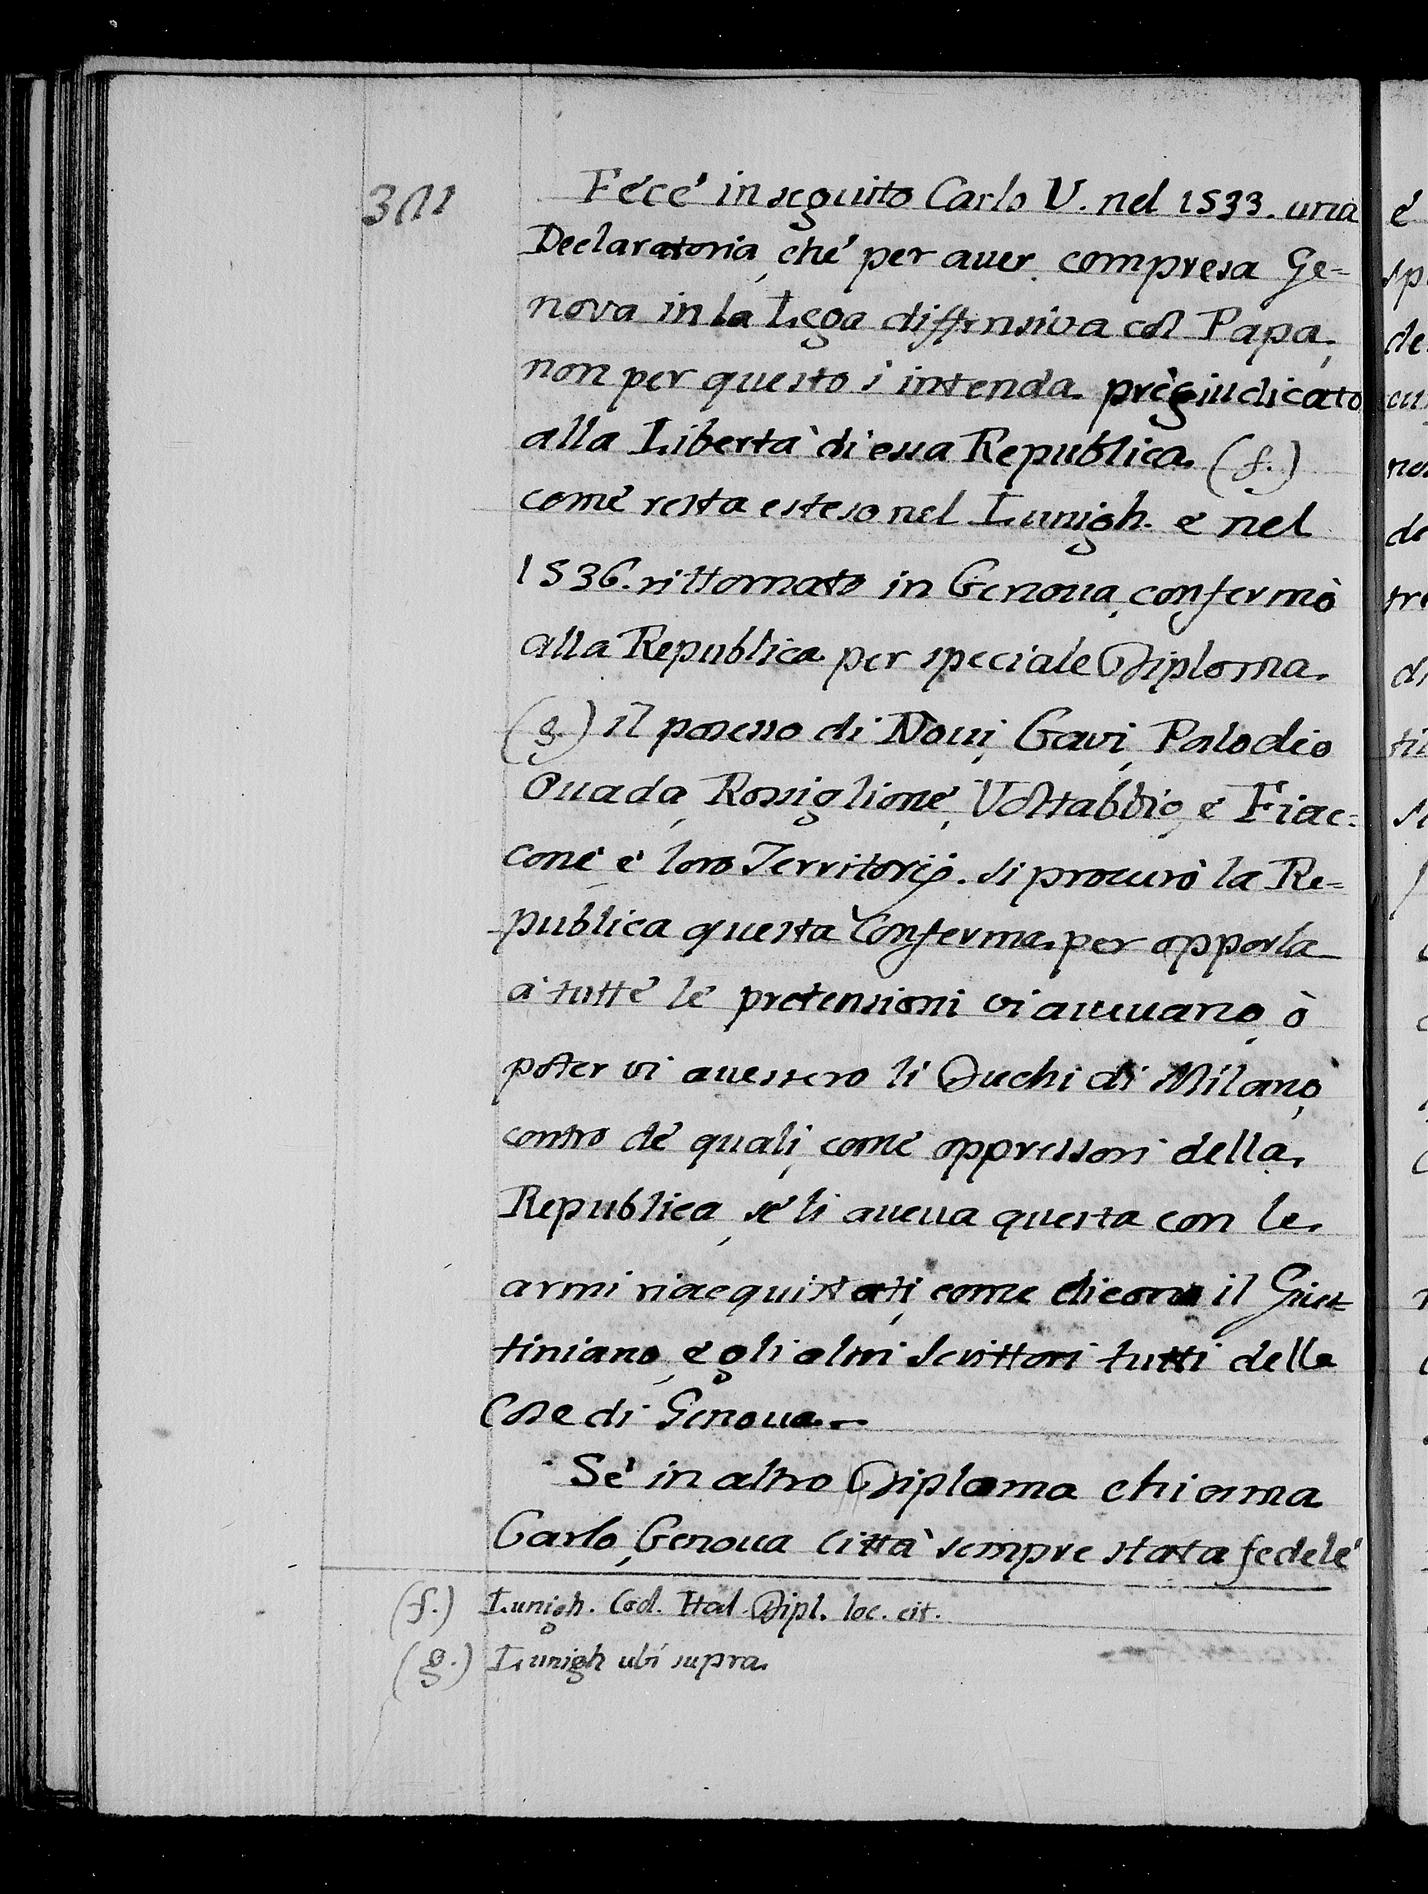 Fecé in seguito Carlo V. nel 1533. una
Declaratoria, ché per auer compresa Ge=
nova in la Lega diffensiva col Papa,
non per questo s'intenda pregiudicato
alla Libertà di essa Republica. (f.)
comé resta esteso nel Lunigh. e nel
1536. rittornato in Genoua, confermò
alla Republica per speciale Diploma.
(g.) il possesso di Noui, Gavi, Palodio
Ouada, Rossiglioné, Voltabbio, e Fiac=
coné, e loro Territorij. si procurò la Re=
publica questa Conferma per opporla
à tutté lé pretensioni vi auuuano, ò
poter vi auessero li Duchi di Milano,
contro dé quali, comé oppressori della
Republica, sé li aueua questa con le
armi riacquistati, come dicono il Gius=
tiniano, e gli altri Scrittori tutti delle
Cose di Genoua.
Sé in altro Diploma chiama
Carlo, Genoua Città sempre stata fedelé
(f.) Lunigh. Cod. Ital. Dipl. loc. cit.
(g.) Lunigh ubi supra.